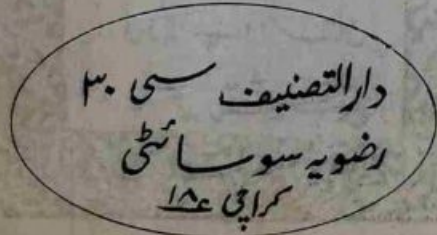 دارالتصنیف سی ۳۰
رضویہ سوسائٹی
کراچی ۱۸